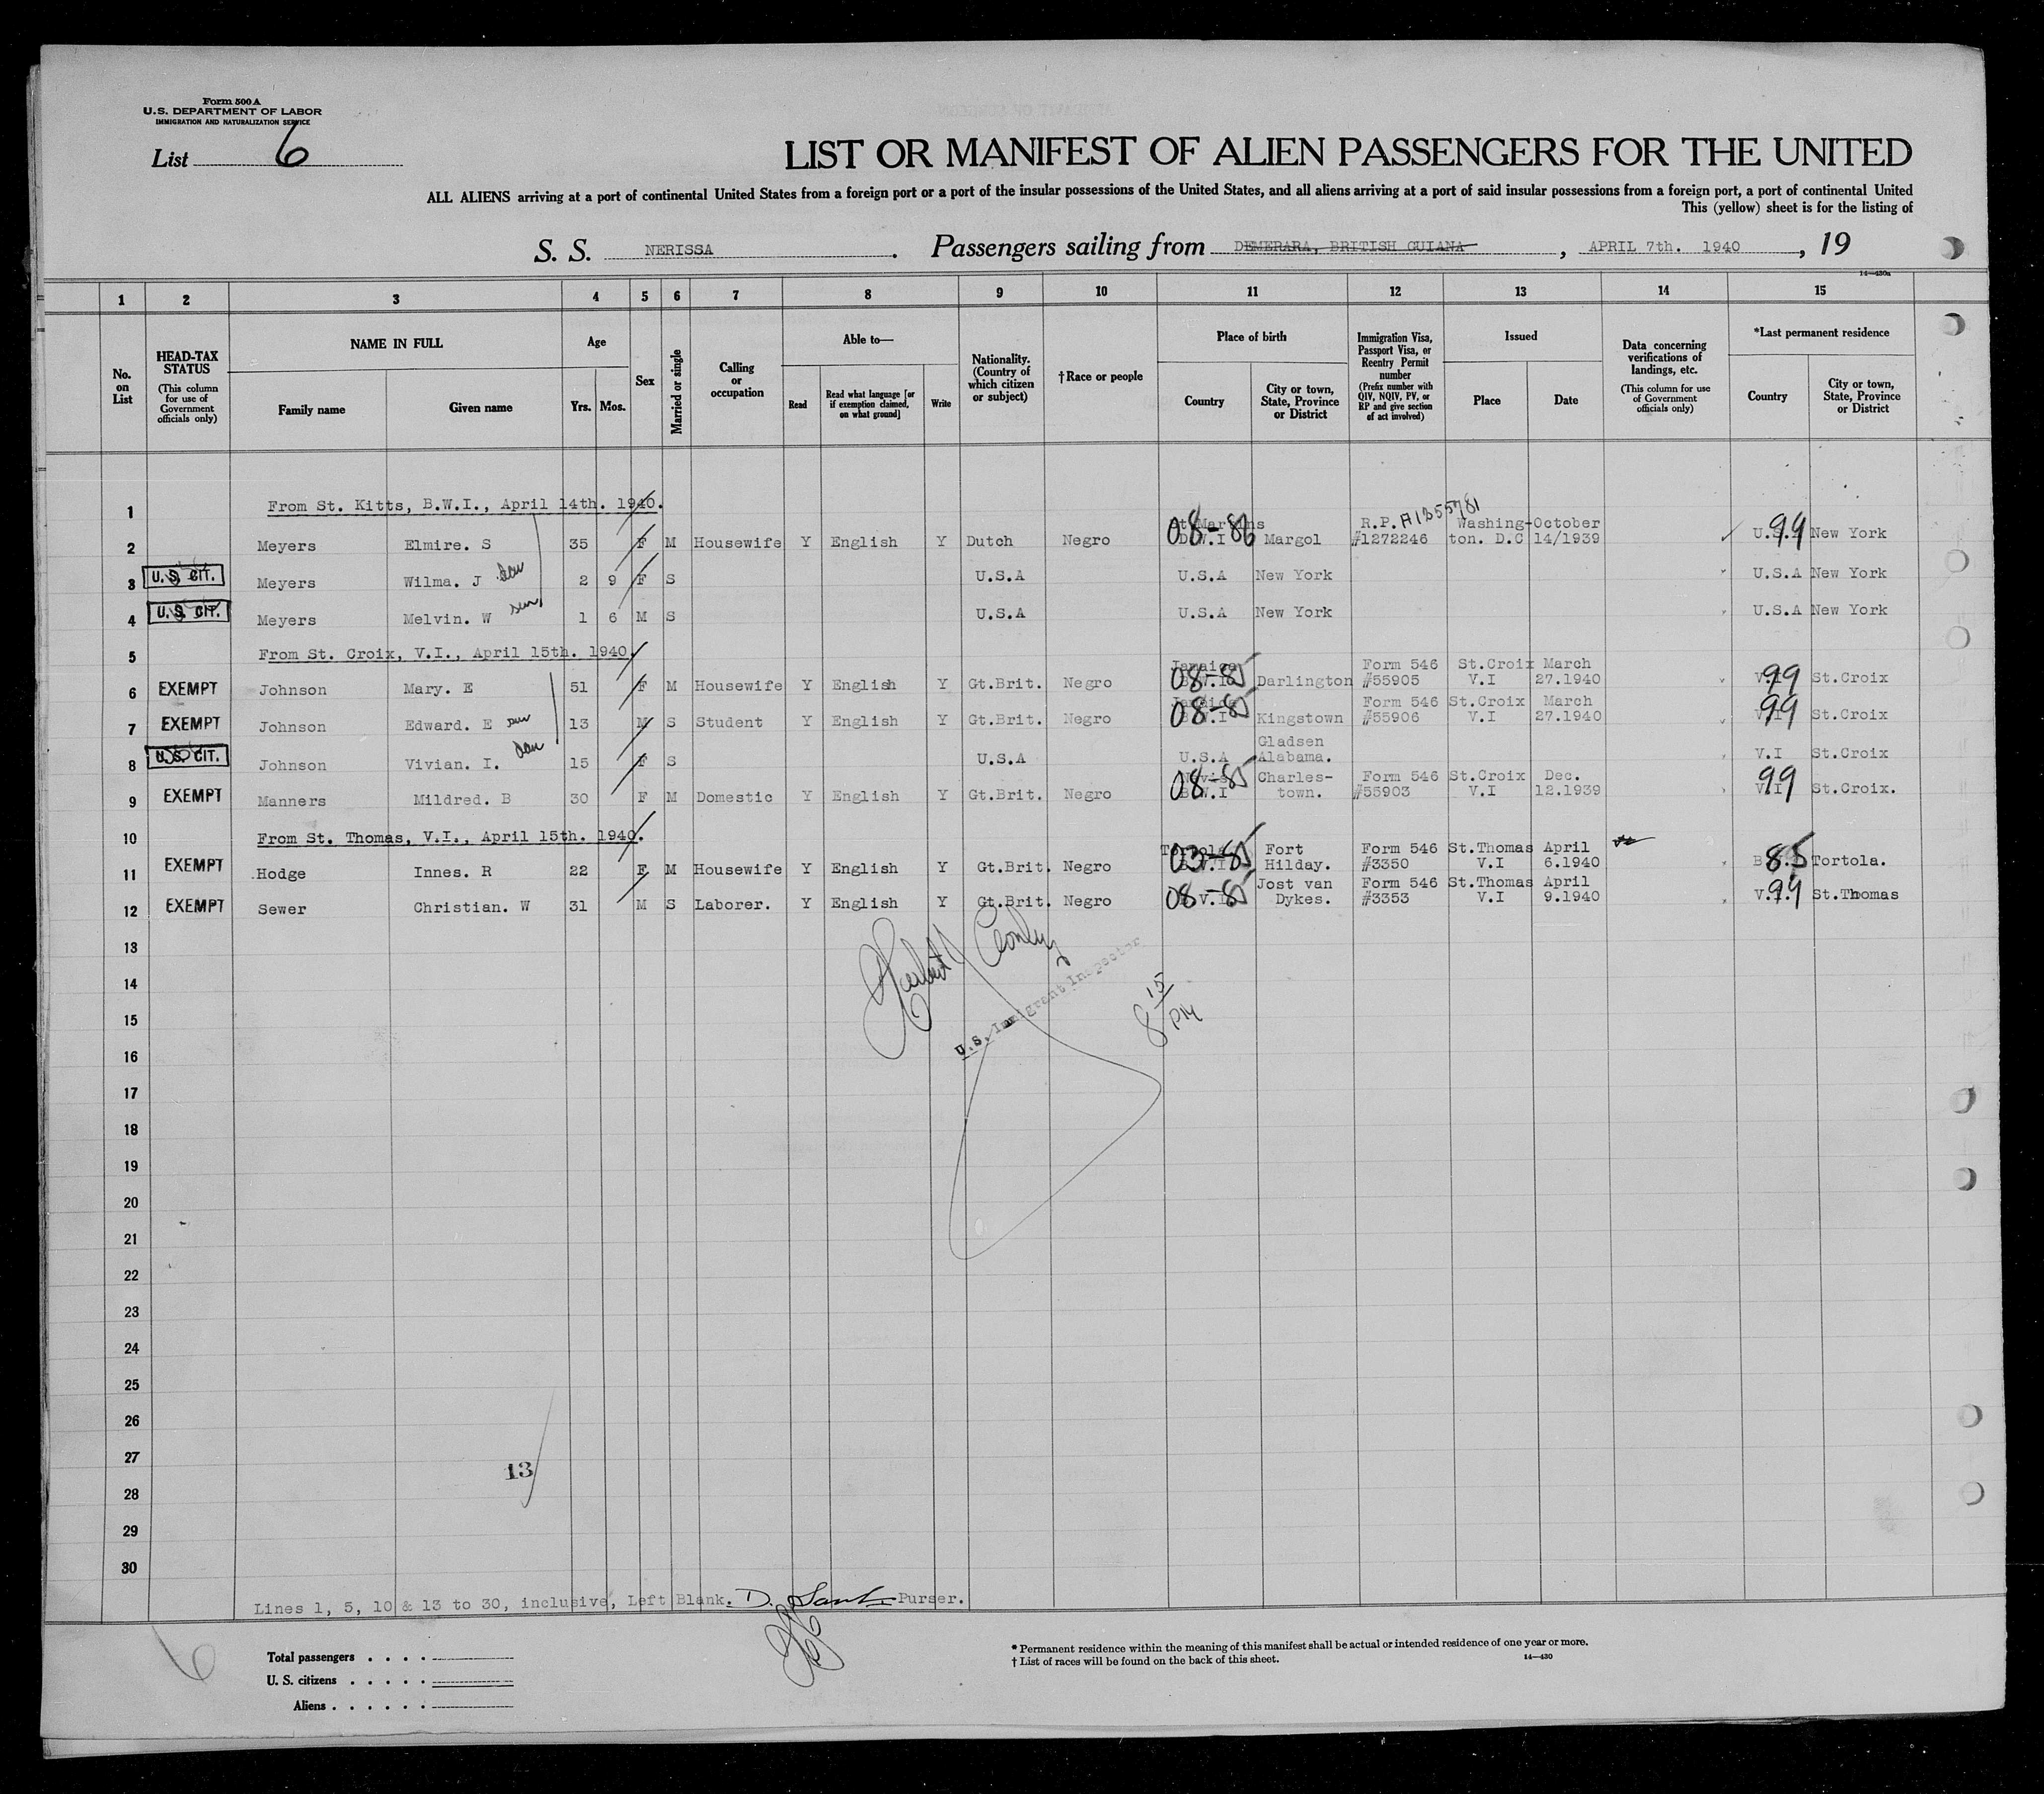 Form 500 A
U.S. DEPARTMENT OF LABOR
IMMIGRATION AND NATURALIZATION SERVICE
List 6
LIST OR MANIFEST OF ALIEN PASSENGERS FOR THE UNITED
ALL ALIENS arriving at a port of continental United States from a foreign port or a port of the insular possessions of the United States, and all aliens arriving at a port of said insular possessions from a foreign port, a port of continental United
This (yellow) sheet is for the listing of
S. S. NERISSA. Passengers sailing from DEMERARA, BRITISH GUIANA, APRIL 7th. 1940, 19
14—430a
1 2 3 4 5 6 7 8 9 10 11 12 13 14 15
No. on List
HEAD-TAX STATUS (This column for use of Government officials only)
NAME IN FULL
Family name Given name
Age
Yrs. Mos.
Sex
Married or single
Calling or occupation
Able to—
Read
Read what language [or if exemption claimed, on what ground]
Write
Nationality. (Country of which citizen or subject)
†Race or people
Place of birth
Country
City or town, State, Province or District
Immigration Visa, Passport Visa, or Reentry Permit number (Prefix number with QIV, NQIV, PV, or RP and give section of act involved)
Issued
Place Date
Data concerning verifications of landings, etc. (This column for use of Government officials only)
*Last permanent residence
Country
City or town, State, Province or District
1 From St. Kitts, B.W.I., April 14th. 1940.
2 Meyers Elmire. S 35 F M Housewife Y English Y Dutch Negro St Martins D.W.I 08-86 Margol R.P. A1255781 #1272246 Washington. D.C October 14/1939 U.S.A 99 New York
3 U.S. CIT. Meyers Wilma. J dau 2 9 F S U.S.A U.S.A New York U.S.A New York
4 U.S. CIT. Meyers Melvin. W son 1 6 M S U.S.A U.S.A New York U.S.A New York
5 From St. Croix, V.I., April 15th. 1940.
6 EXEMPT Johnson Mary. E 51 F M Housewife Y English Y Gt.Brit. Negro Jamaica B.W.I 08-85 Darlington Form 546 #55905 St.Croix V.I March 27.1940 V.I 99 St.Croix
7 EXEMPT Johnson Edward. E son 13 M S Student Y English Y Gt.Brit. Negro Jamaica B.W.I 08-85 Kingstown Form 546 #55906 St.Croix V.I March 27.1940 V.I 99 St.Croix
8 U.S. CIT. Johnson Vivian. I. dau 15 F S U.S.A U.S.A Gladsen Alabama. V.I St.Croix
9 EXEMPT Manners Mildred. B 30 F M Domestic Y English Y Gt.Brit. Negro Nevis B.W.I 08-85 Charles-town. Form 546 #55903 St.Croix V.I Dec. 12.1939 V.I 99 St.Croix.
10 From St. Thomas, V.I., April 15th. 1940.
11 EXEMPT Hodge Innes. R 22 F M Housewife Y English Y Gt.Brit. Negro Tortola B.V.I 03-85 Fort Hilday. Form 546 #3350 St.Thomas V.I April 6.1940 85 Tortola.
12 EXEMPT Sewer Christian. W 31 M S Laborer. Y English Y Gt.Brit. Negro B.V.I 08-85 Jost van Dykes. Form 546 #3353 St.Thomas V.I April 9.1940 V.I 99 St.Thomas
13
14
U.S. Immigrant Inspector
8 15 PM
15
16
17
18
19
20
21
22
23
24
25
26
27
13
28
29
30
Lines 1, 5, 10 & 13 to 30, inclusive, Left Blank. D. Purser.
6
Total passengers . . . .
U. S. citizens . . . . .
Aliens . . . . . .
* Permanent residence within the meaning of this manifest shall be actual or intended residence of one year or more.
† List of races will be found on the back of this sheet.
14—430